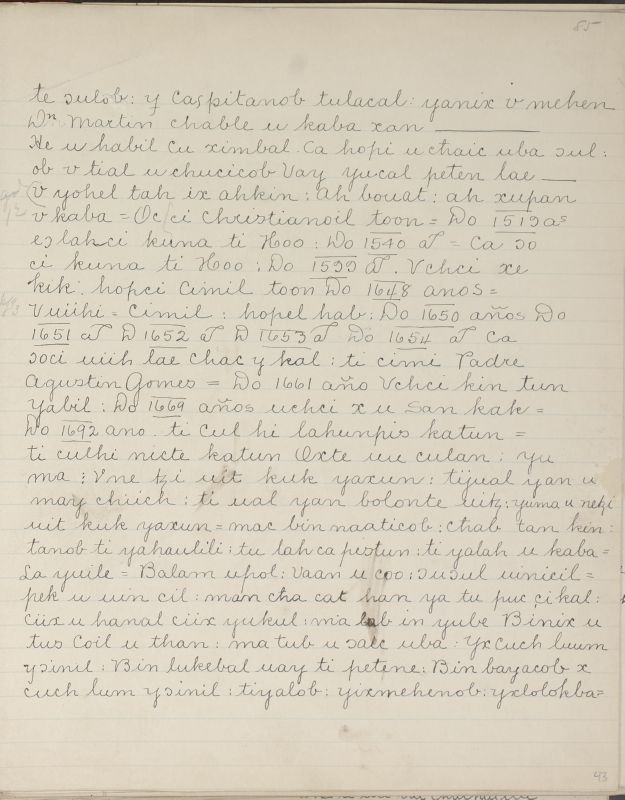 85
te ɔulob : y Caſpitanob tulacal : yanix v mehen
Dn. Martin chable u kaba xan
He u habil cu ximbal. Ca hopi u chaic uba ɔul :
ob v tial u chucicob Uay yucal peten lae
V yohel tah ix ahkin : ah bouat : ah xupan
v kaba = Oc ci christianoil toon = Do 1519 as
eɔlahci kuna ti Hoo : Do 1540 aT = Ca ɔo
ci kuna ti Hoo : Do 1599 aT. Vchci xe
kik. hopci Cimil toon Do 1648 anos =
Vuiihi = Cimil : hopel hab : Do 1650 años Do
1651 aT D 1652 aT D 1653 aT Do 1654 aT Ca
ɔoci uiih lae chac y kal : ti cimi Padre
Agustin Gomes = Do 1661 año Vchci kin tun
Yabil : Do 1669 años uchci x u San kak =
Do 1692 ano. ti Culhi lahunpis katun =
ti culhi nicte katun Oxte uu culan : yu
ma : Vne tzi uit kuk yaxun : tijual yan u
may chiich : ti ual yan bolonte uitz : yuma u netzi
uit kuk yaxun = mac bin naaticob : chab tan kin :
tanob ti yahaulili : tu lah ca pistun : ti yalah u kaba =
La yuile = Balam upol : Vaan u coo : ɔuɔul uinicil =
pek u uin cil : man cha cat han ya tu puc çikal :
Ciix u hanal ciix yukul : ma lab in yube Binix u
tus Coil u than : ma tub u ɔaic uba : Yx Cuch luum
yɔinil : Bin lukebal uay ti petene : Bin bayacob x
cuch lum yɔinil : tiyalob : yixmehenob : yxlolokba =
43